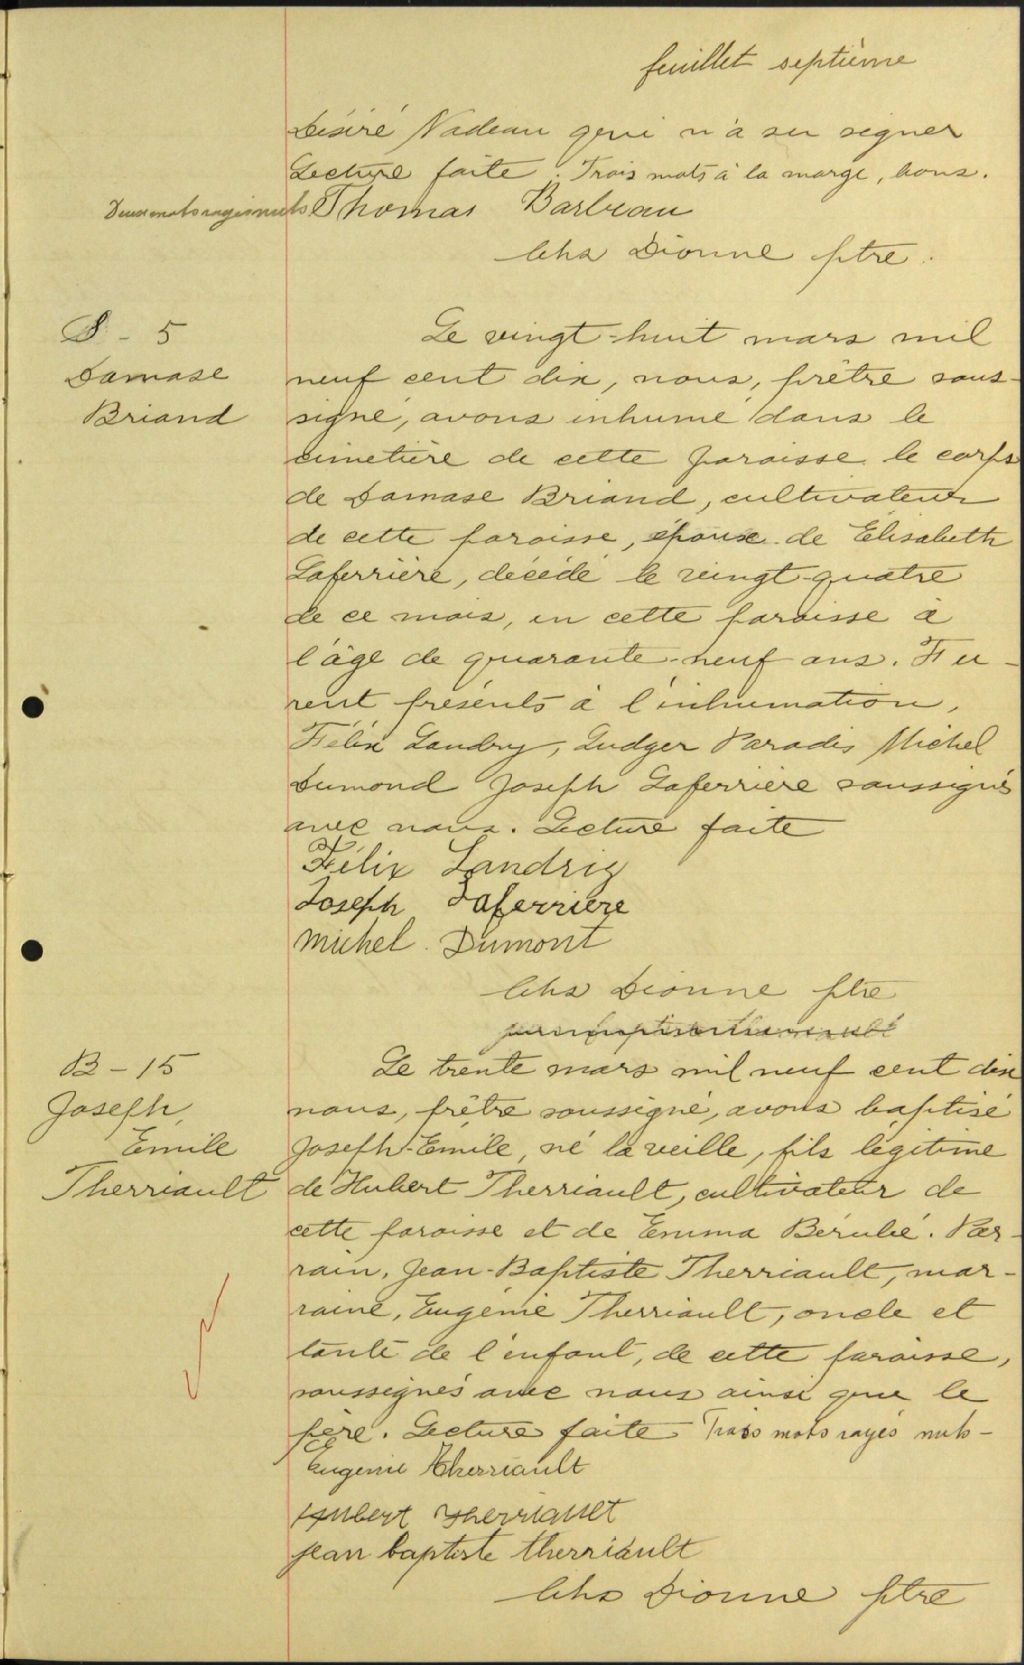 feuillet septième
Désiré Nadeau qui n'a su signer
Lecture faite. Trois mots à la marge, bons.
Deux mots rayés nuls Thomas Barbeau
Chs Dionne ptre.
S - 5
Damase
Briand
Le vingt-huit mars mil
neuf cent dix, nous, prêtre sous-
signé, avons inhumé dans le
cimetière de cette paroisse le corps
de Damase Briand, cultivateur
de cette paroisse, époux de Elisabeth
Laferrière, décédé le vingt-quatre
de ce mois, en cette paroisse à
l'âge de quarante-neuf ans. Fu-
rent présents à l'inhumation,
Félix Landry, Ludger Paradis Michel
Dumond Joseph Laferrière soussignés
avec nous. Lecture faite
Félix Landrig
Joseph Laferriere
Michel Dumont
Chs Dionne ptre
B - 15
Joseph,
Emile
Therriault
Le trente mars mil neuf cent dix
nous, prêtre soussigné, avons baptisé
Joseph-Emile, né la veille, fils légitime
de Hubert Therriault, cultivateur de
cette paroisse et de Emma Bérubé. Par-
rain, Jean-Baptiste Therriault, mar-
raine, Eugénie Therriault, oncle et
tante de l'enfant, de cette paroisse,
soussignés avec nous ainsi que le
père. Lecture faite Trois mots rayés nuls -
Eugenie Therriault
Hubert Therriault
jean baptiste therriault
Chs Dionne ptre